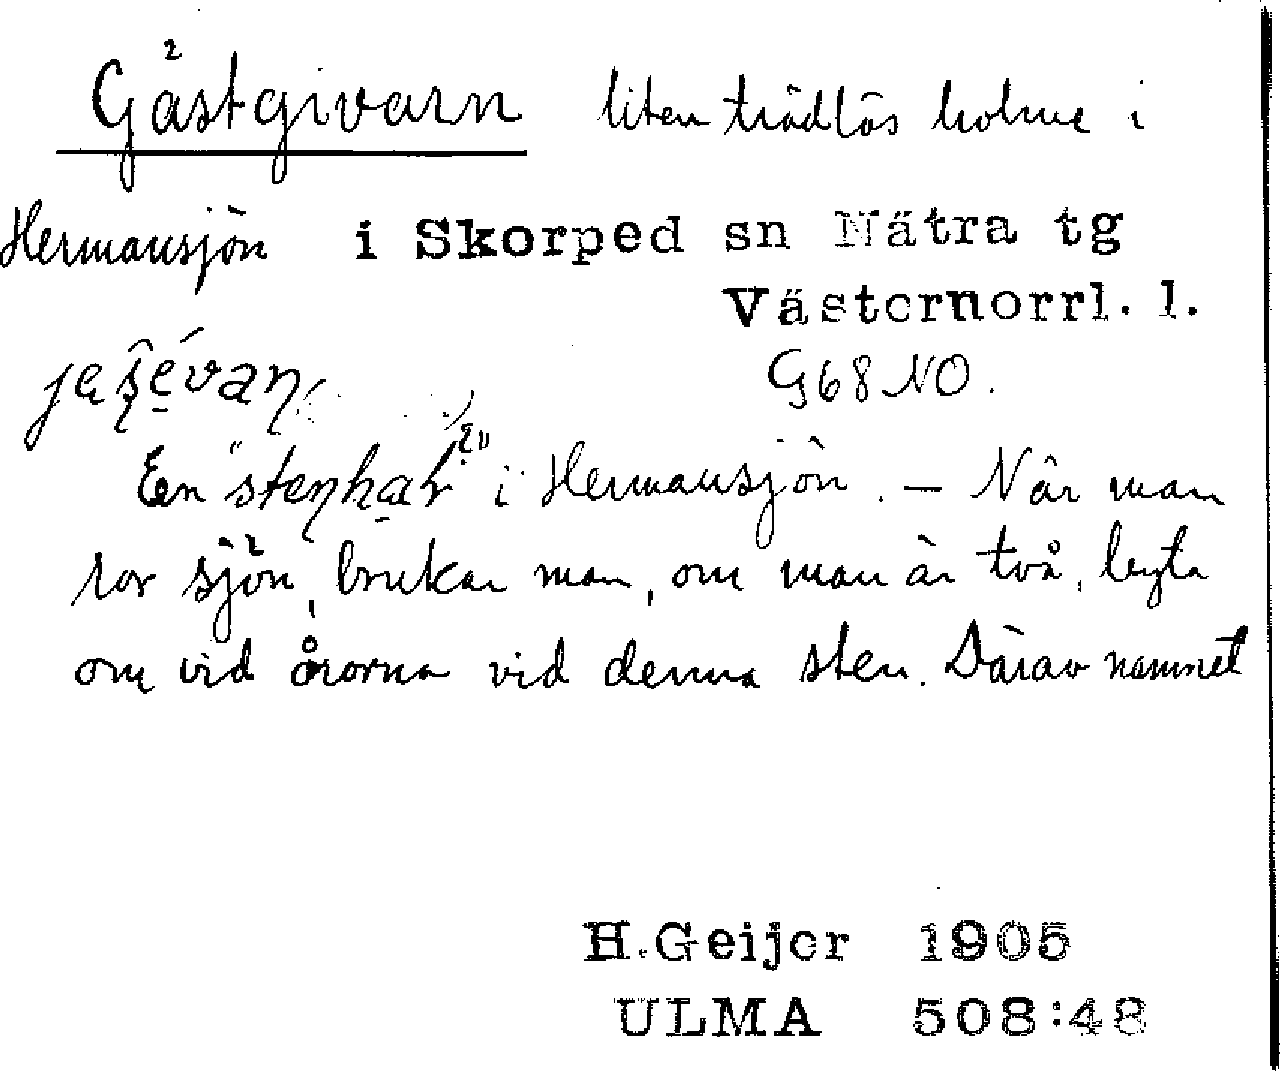 Gästgivarn liten trädlös holme i
Hermansjön i Skorped sn Nätra tg
Västernorrl. l.
G68 NO.
En "stenhäll" i Hermansjön. — När man
ror sjön, brukar man, om man är två, byta
om vid årorna vid denna sten. Därav namnet
H.Geijer 1905
ULMA 508:48